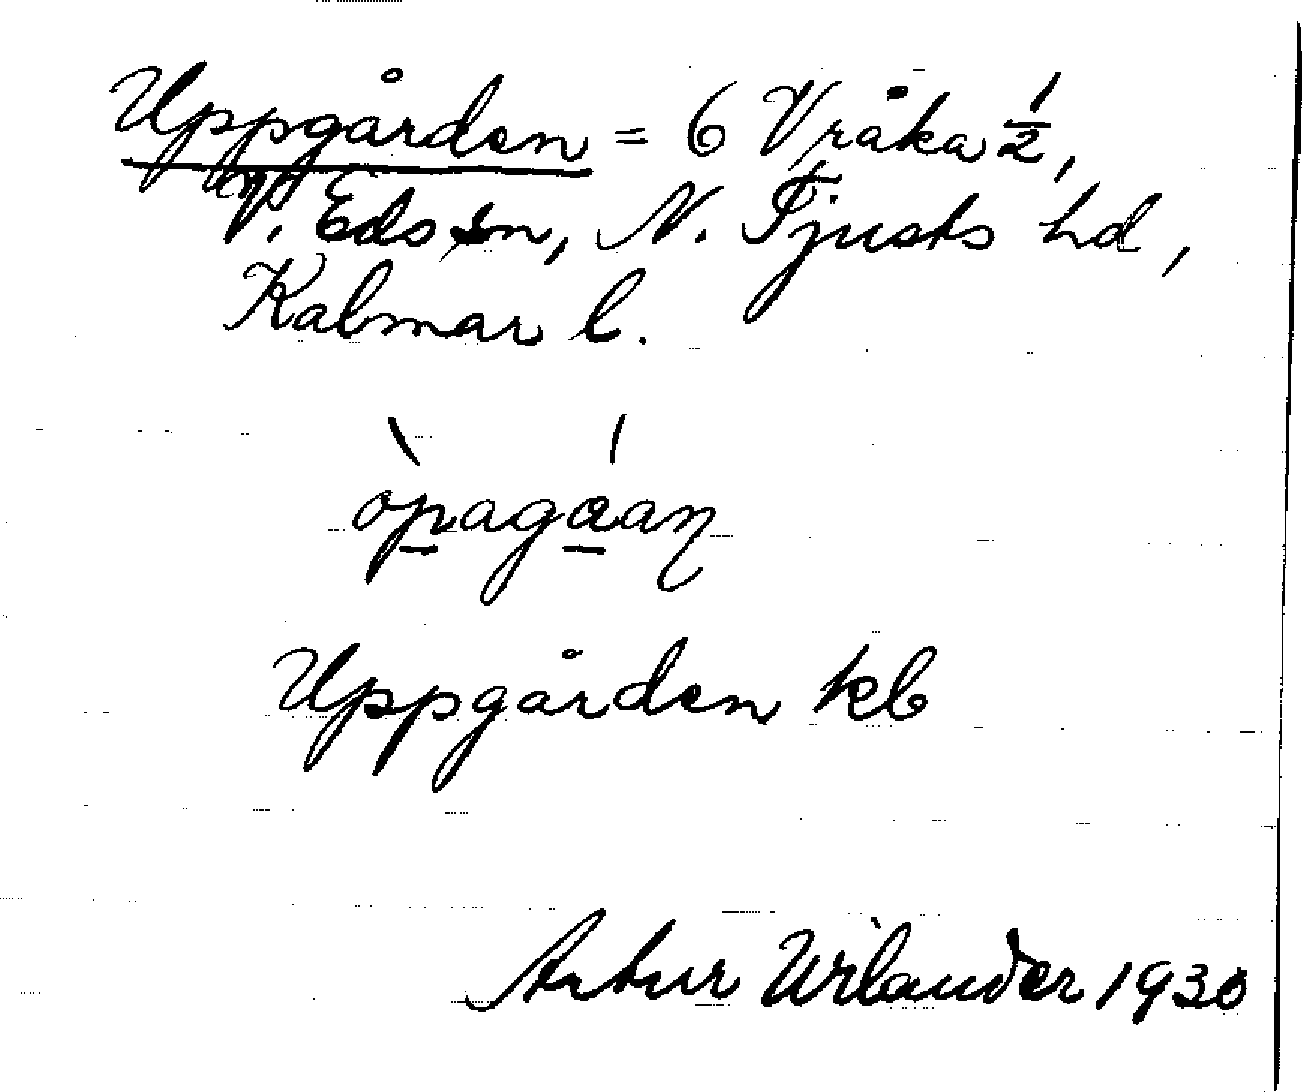 Uppgården = 6 Vråka ½,
V. Eds sn, N. Tjusts hd,
Kalmar l.
òpagáan
Uppgården kb
Artur Wilander 1930